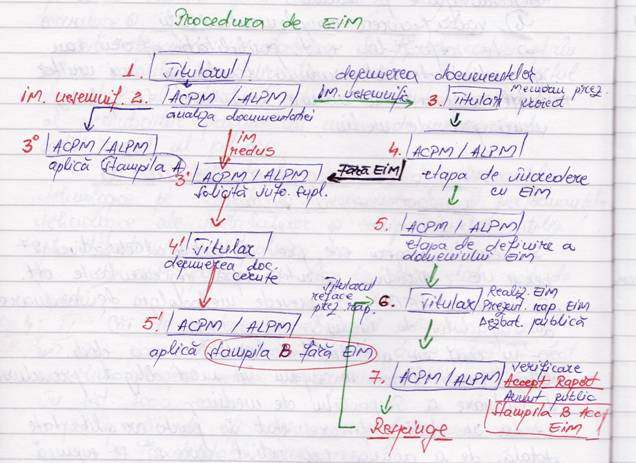 Procedura de EIM
1. Titularul
depunerea documentelor
im. nesemnif. 2. ACPM / ALPM
analiza documentatiei
im.
3. Titular
prez. proiect
im redus
3° ACPM / ALPM
aplică Stampila A
3' ACPM / ALPM
Solicită info. supl.
Fără EIM
4. ACPM / ALPM
etapa de
cu EIM
4' Titular
depunerea doc.
cerute
5. ACPM / ALPM
etapa de definire a
domeniului EIM
5' ACPM / ALPM
aplică Stampila B fără EIM
Titularul
reface
rap.
6. Titular
Realiz. EIM
Prezent. rap. EIM
Dezbat. publică
7. ACPM / ALPM
verificare
Accept Raport
Anunt public
Stampila B Acc
EIM
Respinge